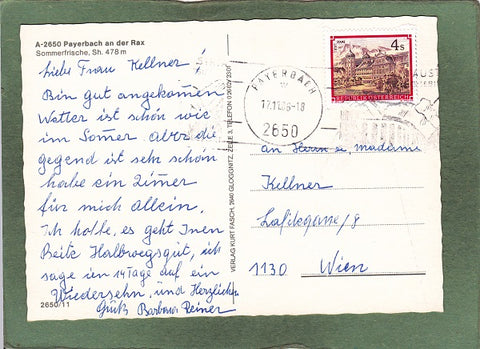 A-2650 Payerbach an der Rax
Sommerfrische, Sh. 478 m
Liebe Frau Kellner!
Bin gut angekommen
Wetter ist schön wie
im Somer Aber die
gegend ist sehr schön
habe ein Zimer
für mich Allein.
Ich hoffe, es geht Inen
Beite Halbwegsgut, ich
sage in 14 Tage auf ein
Wiedersehn, und Herzlich
Grüß Barbara Reiner
2650/11
VERLAG KURT FASCH, 2640 GLOGGNITZ, ZEILE 3, TELEFON
4s
REPUBLIK ÖSTERREICH
PAYERBACH
2650
an Herrn u. Madame
Kellner
1130 Wien